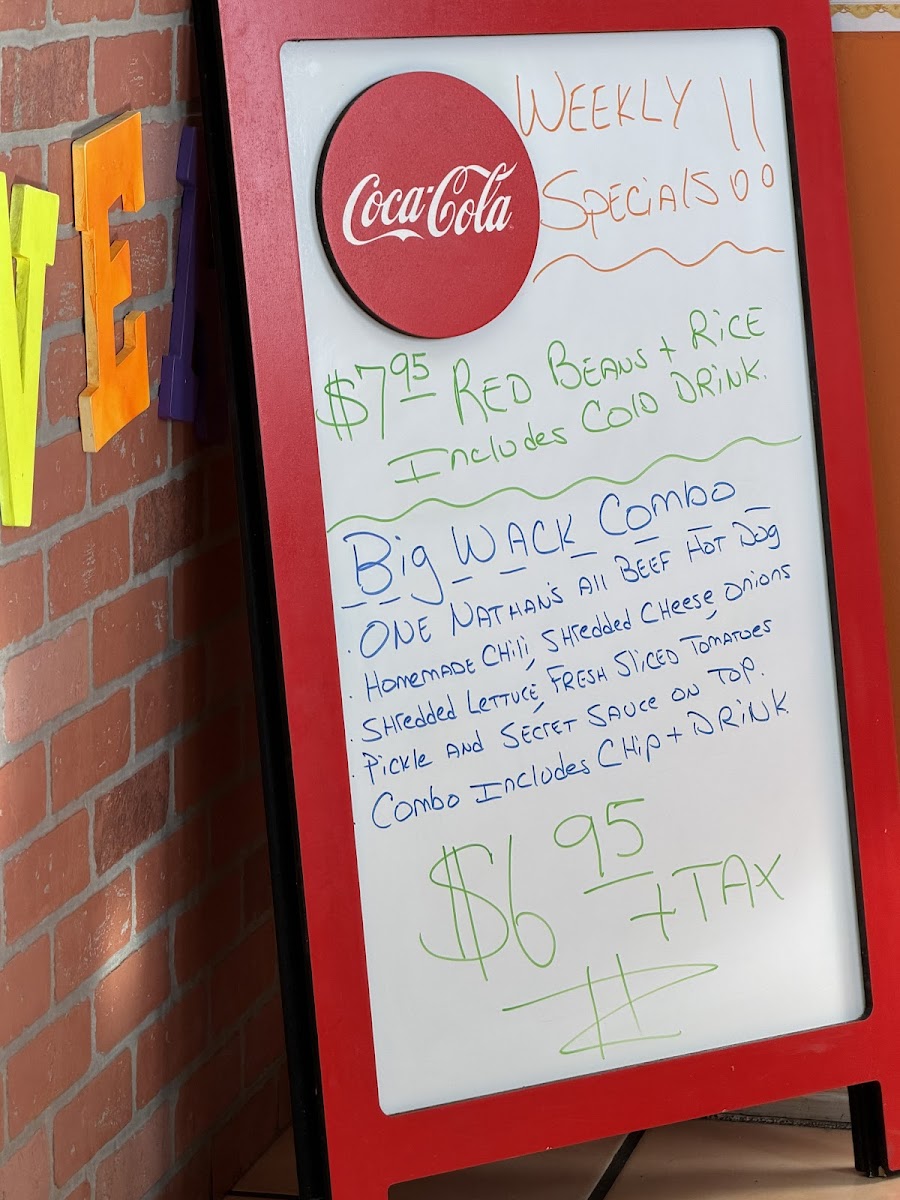 VE
Coca-Cola
WEEKLY
SPECIALS!!
$7.95 RED BEANS + RICE
INCLUDES COLD DRINK.
Big WACK COMBO
· ONE NATHAN'S All BEEF HOT DOG
· HOMEMADE CHili, SHredded CHeese, onions
· SHredded LETTUCE, FRESH SlicED TOMATOES
· Pickle AND SECRET SAUCE ON TOP.
COMBO INCludES CHip + DRiNK
$6.95
+ TAX